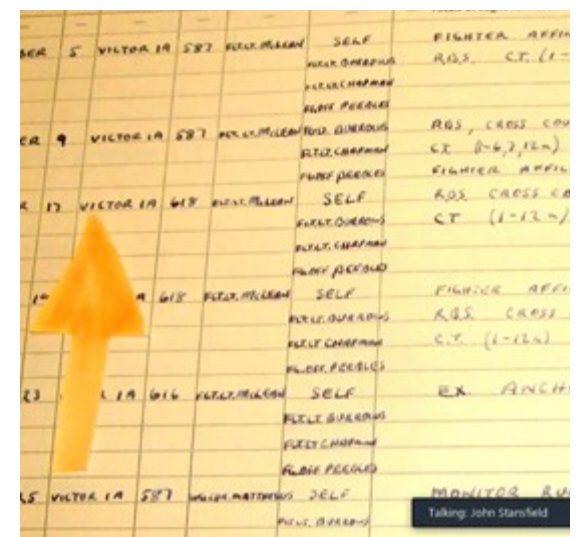 BER 5 VICTOR 1A 587 FLT.LT. MCLEAN SELF FIGHTER AFFIL
FLT.LT. BURROWS RBS. CT. (1-
FLT.LT. CHAPMAN
FG.OFF PEEBLES
ER 9 VICTOR 1A 587 FLT.LT. MCLEAN FLT.LT. BURROWS RBS, CROSS COU
FLT.LT. CHAPMAN CT (1-6,7,12a)
FG.OFF PEEBLES FIGHTER AFFIL
R 17 VICTOR 1A 618 FLT.LT. MCLEAN SELF RBS. CROSS CO
FLT.LT. BURROWS CT (1-12a)
FLT.LT. CHAPMAN
FG.OFF PEEBLES
1A 618 FLT.LT. MCLEAN SELF FIGHTER AFFI
FLT.LT. BURROWS RBS. CROSS
FLT.LT CHAPMAN C.T. (1-12a)
FG.OFF. PEEBLES
23 1A 616 FLT.LT. MCLEAN SELF EX. ANCH
FLT.LT. BURROWS
FLT.LT CHAPMAN
FG.OFF PEEBLES
15 VICTOR 1A 587 MATTHEWS SELF MONITOR RU
FLT.LT. BURROWS
Talking: John Stansfield